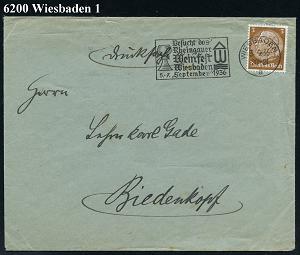 6200 Wiesbaden 1
Drucksache
Besucht das
Rheingauer
Weinfest
Wiesbaden
5.-7. September 1936
WIESBADEN
Herrn
Karl Gade
Biedenkopf